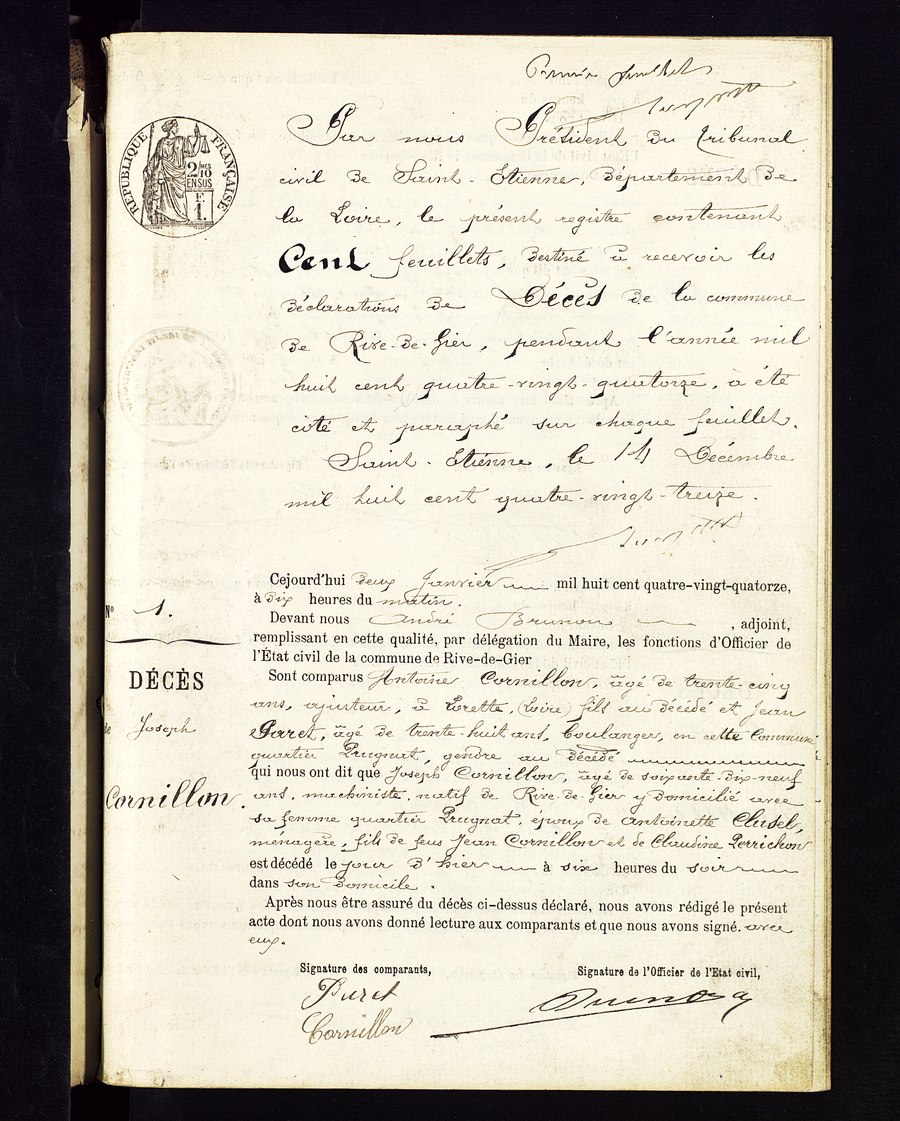 Premier feuillet
Par nous Président du tribunal
civil de Saint-Etienne, département de
la Loire, le présent registre contenant
Cent feuillets, destiné à recevoir les
déclarations de Décès de la commune
de Rive-de-Gier, pendant l'année mil
huit cent quatre-vingt-quatorze, a été
coté et paraphé sur chaque feuillet.
Saint-Etienne, le 14 Décembre
mil huit cent quatre-vingt-treize.
RÉPUBLIQUE FRANÇAISE
2 MES
10
EN SUS
F.
1.
No 1.
DÉCÈS
de Joseph
Cornillon.
Cejourd'hui deux Janvier mil huit cent quatre-vingt-quatorze,
à dix heures du matin.
Devant nous André Brunon, adjoint,
remplissant en cette qualité, par délégation du Maire, les fonctions d'Officier de
l'État civil de la commune de Rive-de-Gier
Sont comparus Antoine Cornillon, âgé de trente-cinq
ans, ajusteur, à Lorette, (Loire) fils au décédé et Jean
Paret, âgé de trente-huit ans, boulanger, en cette Commune
quartier Prugnat, gendre au décédé
qui nous ont dit que Joseph Cornillon, âgé de soixante-dix-neuf
ans, machiniste, natif de Rive-de-Gier y domicilié avec
sa femme quartier Prugnat, époux de Antoinette Clusel,
ménagère, fils de feus Jean Cornillon et de Claudine Perrichon
est décédé le jour d'hier à six heures du soir
dans son domicile.
Après nous être assuré du décès ci-dessus déclaré, nous avons rédigé le présent
acte dont nous avons donné lecture aux comparants et que nous avons signé. avec
eux.
Signature des comparants,
Signature de l'Officier de l'Etat civil,
Paret
Cornillon